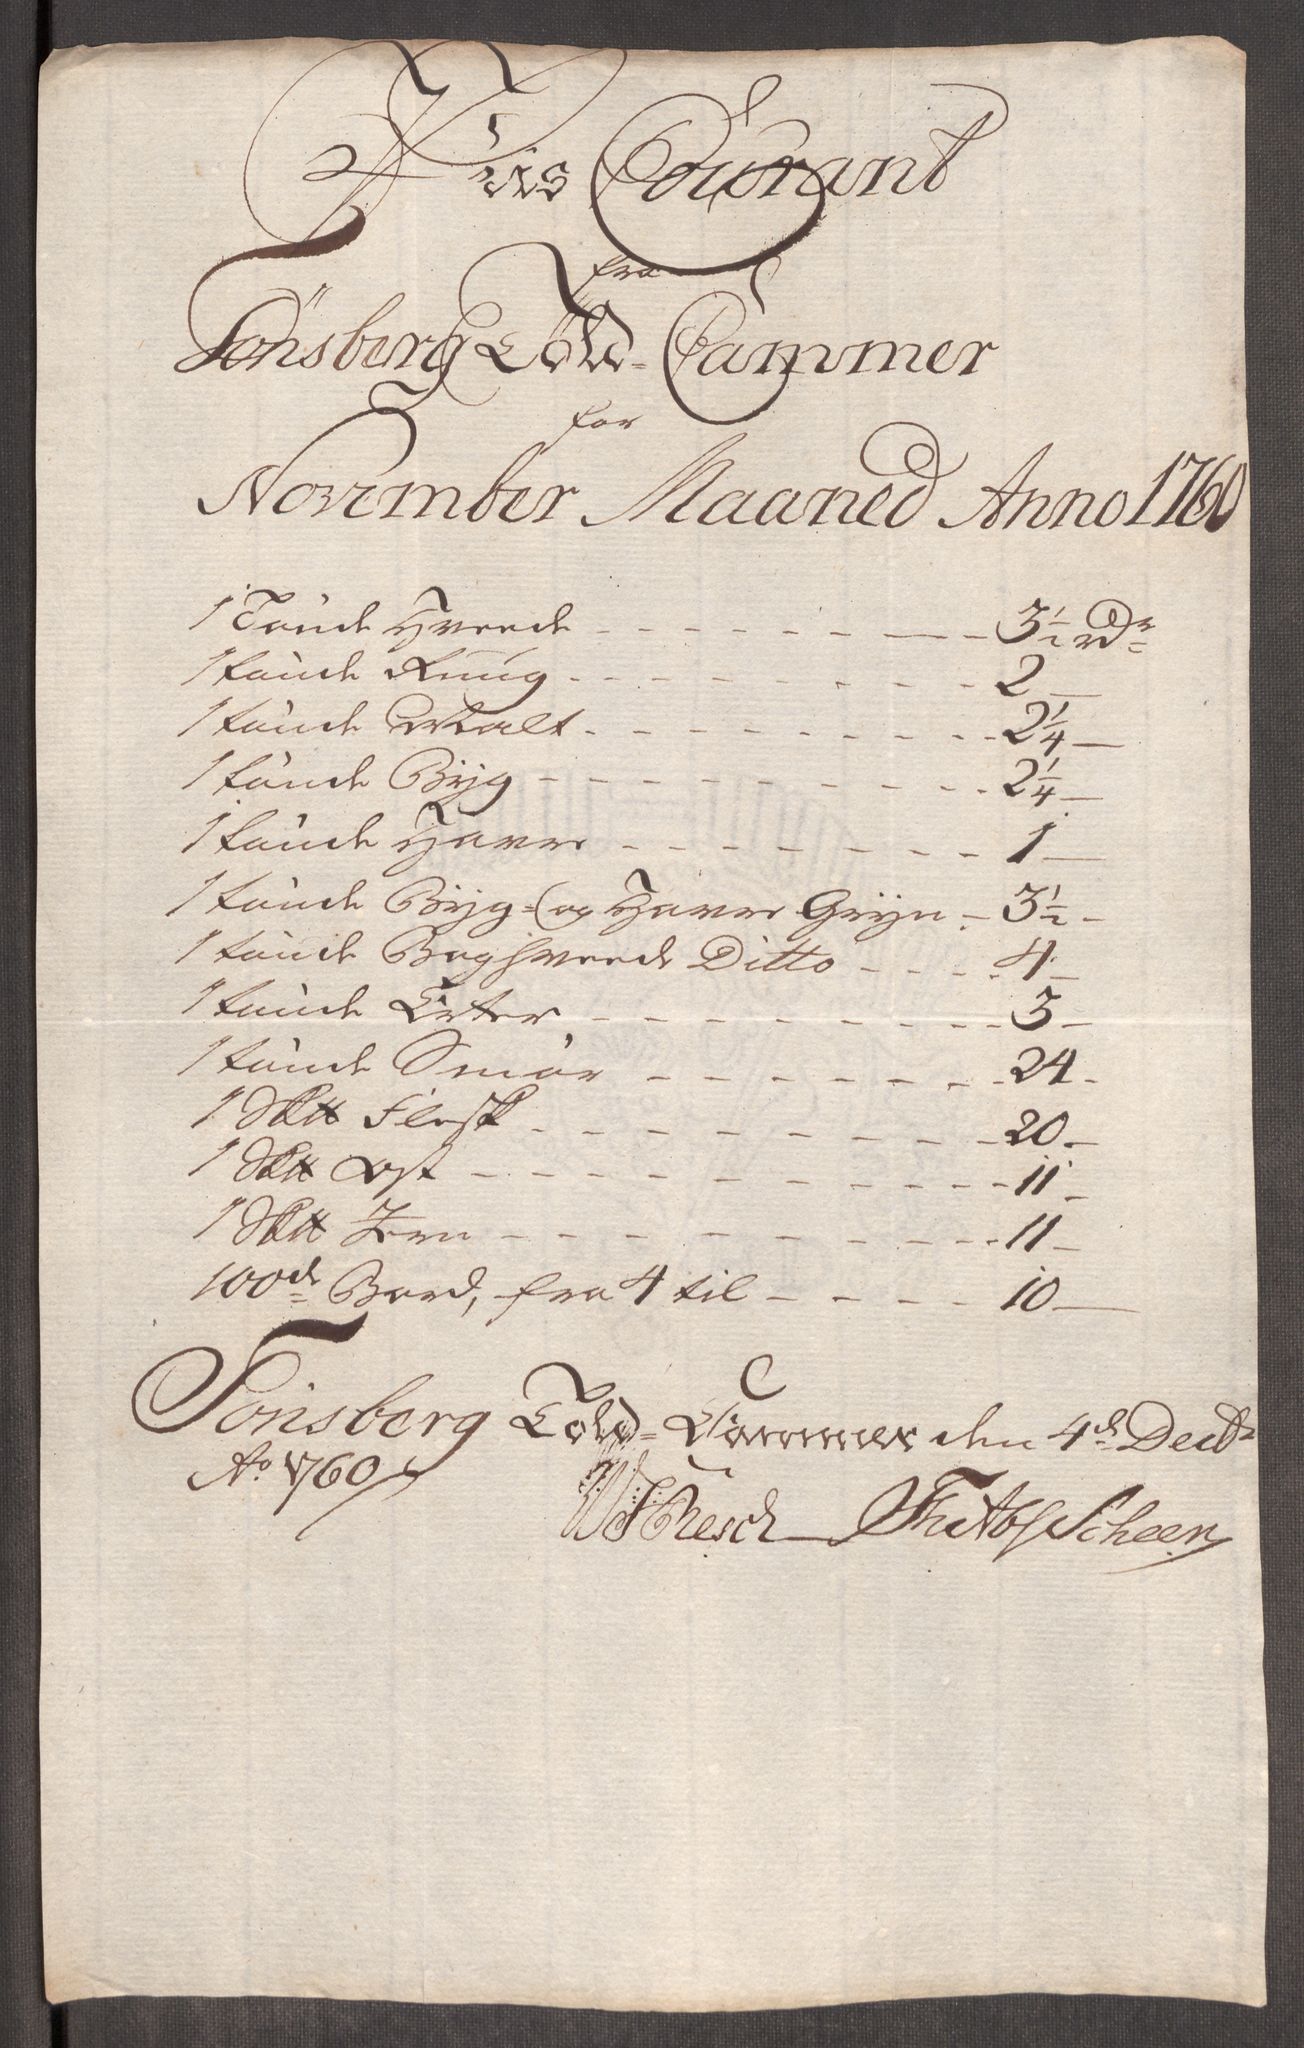 Priis Courant
fra
Tönsberg Told-Cammer
for
November Maaned Anno 1760
1 Tönde Hveede - - - 3½ rdr
1 tönde Ruug - - - 2 —
1 tönde Malt - - - 2¼ —
1 tönde Byg - - - 2¼ —
1 tönde Havre - - - 1 —
1 tönde Byg- og Havre Gryn - 3½ -
1 tönde Boghveede Ditto - - - 4 -
1 tönde Erter - - - 3 -
1 tönde Smör - - - 24 -
1 Sk℔ Flesk - - - 20 -
1 Sk℔ Ost - - - 11 -
1 Sk℔ Jern - - - 11 -
100de Bord, fra 4 til - - - 10 —
Tönsberg Told-Cammer den 4de Decbr
Ao 1760
Resch Scheen